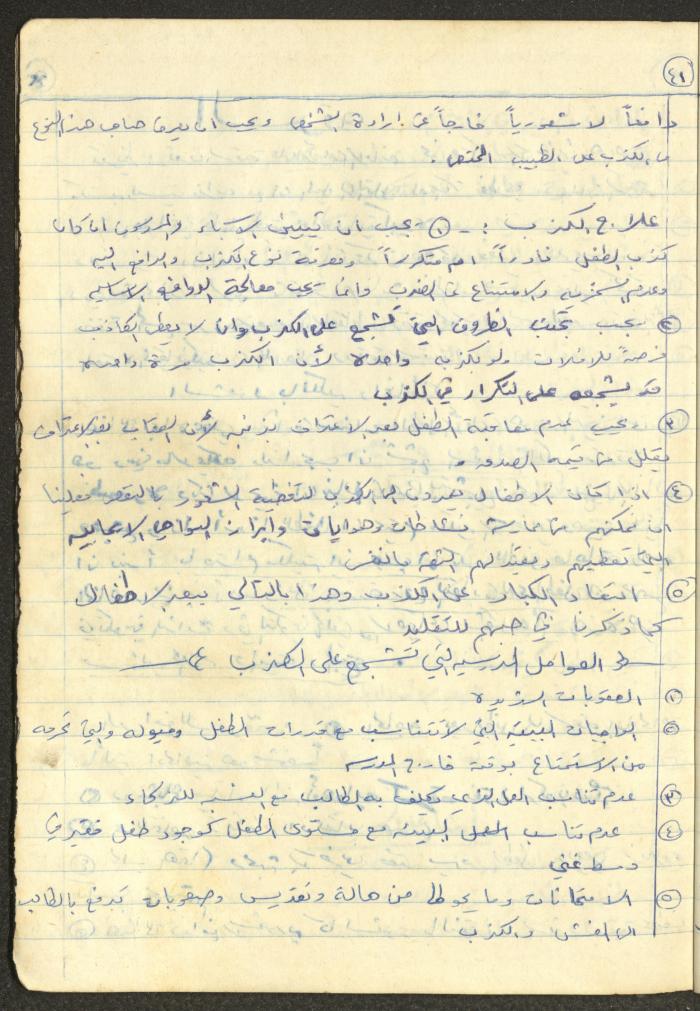 ٤١
دافعاً لا شعورياً خارجاً عن إرادة الشخص ويجب ان يعرض صاحب هذا النوع
من الكذب على الطبيب المختص .
علاج الكذب :- ① يجب ان يتبين الاباء والمدرسون اذا كان
كذب الطفل نادراً ام متكرراً ومعرفة نوع الكذب والدافع اليه
وعدم السخرية والامتناع عن الضرب وانما يجب معالجة الدوافع الاساسية
② يجب تجنب الظروف التي تشجع على الكذب وان لا يعطى الكاذب
فرصة للافلات ولو بكذبه واحدة لأن الكذب مرة واحدة
قد يشجعه على التكرار في الكذب
③ ويجب عدم معاقبة الطفل بعد الاعتراف بذنبه لأن العقاب بعد الاعتراف
يقلل من قيمة الصدق .
④ اذا كان الاطفال يميلون الى الكذب لتغطية الشعور بالنقص فعلينا
ان نمكنهم من ممارسة نشاطات وهوايات وابراز النواحي الايجابيه
التي تعطيهم وتعيد لهم الثقة بالنفس
⑤ ابتعاد الكبار عن الكذب وهذا بالتالي يبعد الاطفال
كما ذكرنا في حبهم للتقليد
العوامل المدرسيه التي تشجع على الكذب
① العقوبات الشديدة
② الواجبات البيتيه التي لا تتناسب مع قدرات الطفل وميوله والتي تحرمه
من الاستمتاع بوقته خارج المدرسه
③ عدم تناسب العمل الذي يكلف به الطالب مع الذكاء
④ عدم تناسب البيئه مع مستوى الطفل كوجود طفل فقير في
وسط غني
⑤ الامتحانات وما يحوطها من هالة وتقديس وعقوبات تدفع بالطالب
الى الغش والكذب